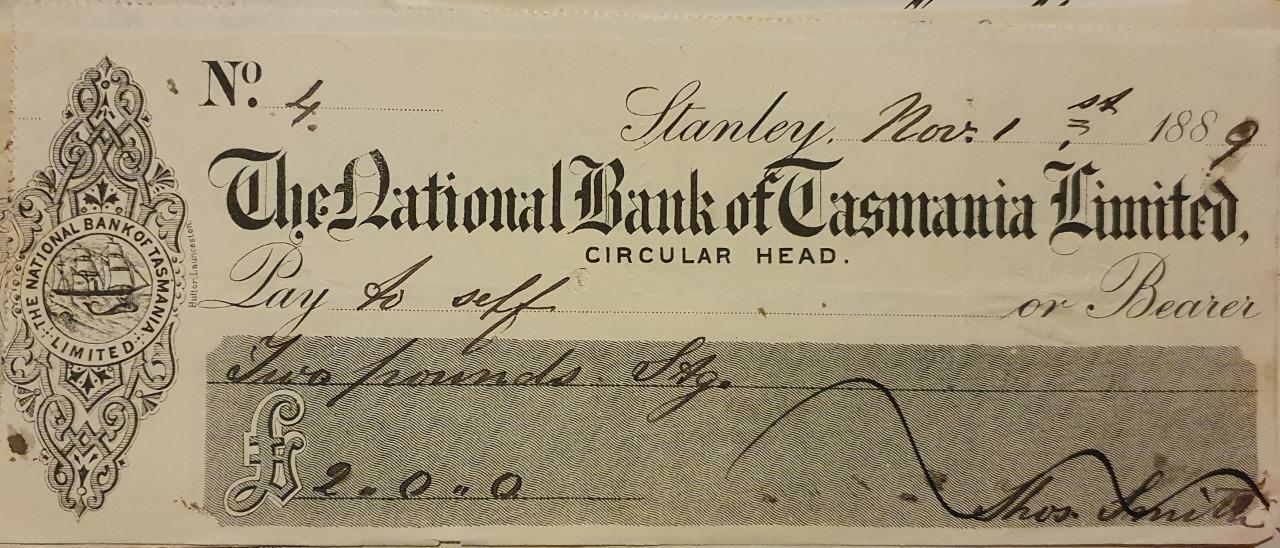 No. 4
Stanley, Nov. 1st 1889
The National Bank of Tasmania Limited,
CIRCULAR HEAD.
Pay to self or Bearer
Two pounds Stg.
£ 2 " 0 " 0
Thos. Smith
THE NATIONAL BANK OF TASMANIA LIMITED
Hutton Launceston